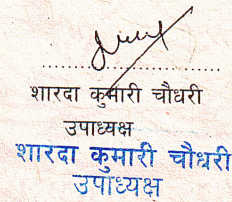 शारदा कुमारी चौधरी
उपाध्यक्ष
शारदा कुमारी चौधरी
उपाध्यक्ष